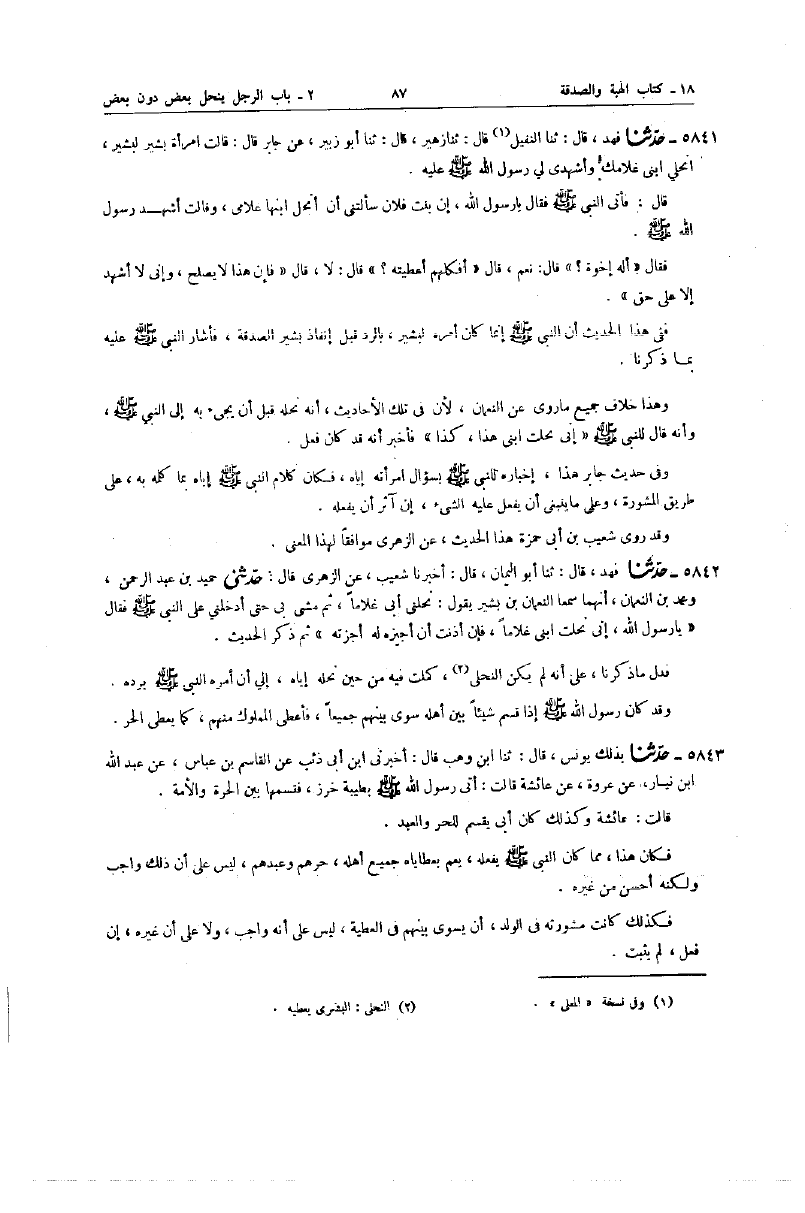 ١٨ - كتاب الهبة والصدقة ٨٧ ٢ - باب الرجل ينحل بعض دون بعض
٥٨٤١ - حدّثنا فهد ، قال : ثنا النفيلى(١) قال : ثنا زهير ، قال : ثنا أبو زبير ، عن جابر قال : قالت امرأة بشير لبشير ،
انحلي ابنى غلامك وأشهدى لي رسول الله ﷺ عليه .
قال : فأتى النبي ﷺ فقال يارسول الله ، إن بنت فلان سألتنى أن أنحل ابنها غلامى ، وقالت أشهـد رسول
الله ﷺ .
فقال « أله إخوة ؟ » قال: نعم ، قال « أفكلهم أعطيته ؟ » قال : لا ، قال « فإن هذا لايصلح ، وإنى لا أشهد
إلا على حق » .
ففى هذا الحديث أن النبي ﷺ إنما كان أمره لبشير ، بالرد قبل إنفاذ بشير الصدقة ، فأشار النبي ﷺ عليه
بمـا ذكرنا .
وهذا خلاف جميع ماروى عن النعمان ، لأن فى تلك الأحاديث ، أنه نحله قبل أن يجىء به إلى النبي ﷺ ،
وأنه قال للنبي ﷺ « إنى نحلت ابنى هذا ، كذا » فأخبر أنه قد كان فعل .
وفى حديث جابر هذا ، إخباره للنبي ﷺ بسؤال امرأته إياه ، فـكان كلام النبي ﷺ إياه بما كلمه به ، على
طريق المشورة ، وعلى ماينبغى أن يفعل عليه الشىء ، إن آثر أن يفعله .
وقد روى شعيب بن أبى حمزة هذا الحديث ، عن الزهرى موافقاً لهذا المعنى .
٥٨٤٢ - حدّثنا فهد ، قال : ثنا أبو اليمان ، قال : أخبرنا شعيب ، عن الزهرى قال : حدّثنى حميد بن عبد الرحمن ،
ومحمد بن النعمان ، أنهما سمعا النعمان بن بشير يقول : نحلنى أبى غلاماً ، ثم مشى بى حتى أدخلني على النبي ﷺ فقال
« يارسول الله ، إنى نحلت ابنى غلاماً ، فإن أذنت أن أجيزه له أجزته » ثم ذكر الحديث .
فدل ماذكرنا ، على أنه لم يكن النحلى(٢) ، كملت فيه من حين نحله إياه ، إلي أن أمره النبي ﷺ برده .
وقد كان رسول الله ﷺ إذا قسم شيئاً بين أهله سوى بينهم جميعاً ، فأعطى المملوك منهم ، كما يعطى الحر .
٥٨٤٣ - حدّثنا بذلك يونس ، قال : ثنا ابن وهب قال : أخبرنى ابن أبى ذئب عن القاسم بن عباس ، عن عبد الله
ابن نيـار، عن عروة ، عن عائشة قالت : أتى رسول الله ﷺ بظبية خرز ، فقسمها بين الحرة والأمة .
قالت : عائشة وكذلك كان أبى يقسم للحر والعبد .
فـكان هذا ، مما كان النبي ﷺ يفعله ، يعم بعطاياه جميع أهله ، حرهم وعبدهم ، ليس على أن ذلك واجب
ولـكنه أحسن من غيره .
فـكذلك كانت مشورته فى الولد ، أن يسوى بينهم فى العطية ، ليس على أنه واجب ، ولا على أن غيره ، إن
فعل ، لم يثبت .
(١) وفى نسخة « المعلى » . (٢) النحلى : البشرى يعطيه .